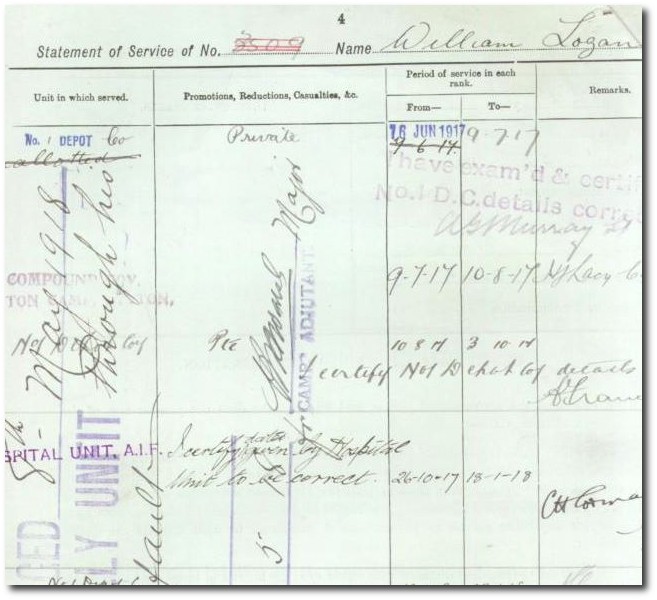 4
Statement of Service of No. 3509 Name William Logan
Unit in which served.
Promotions, Reductions, Casualties, &c.
Period of service in each rank.
From—
To—
Remarks.
No. 1 DEPOT Co
allotted
Private
16 JUN 1917
9-7-17
9-6-17
I have exam'd & certif
No. 1 D.C. details correc
Murray
COMPOUND COY,
9-7-17 10-8-17
No 1 Depot Coy
Pte
10 8 17 3 10 17
I certify No 1 Depot Coy details
SPITAL UNIT, A.I.F.
I certify dates given by Hospital
Unit to be correct.
26-10-17 18-1-18
8th May 1918
through his
fault
LY UNIT
GED
Major
CAMP ADJUTANT.